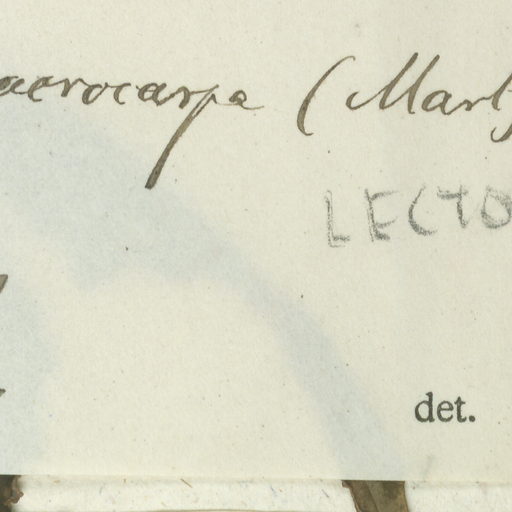 acrocarpa (Mart
LECTO
det.